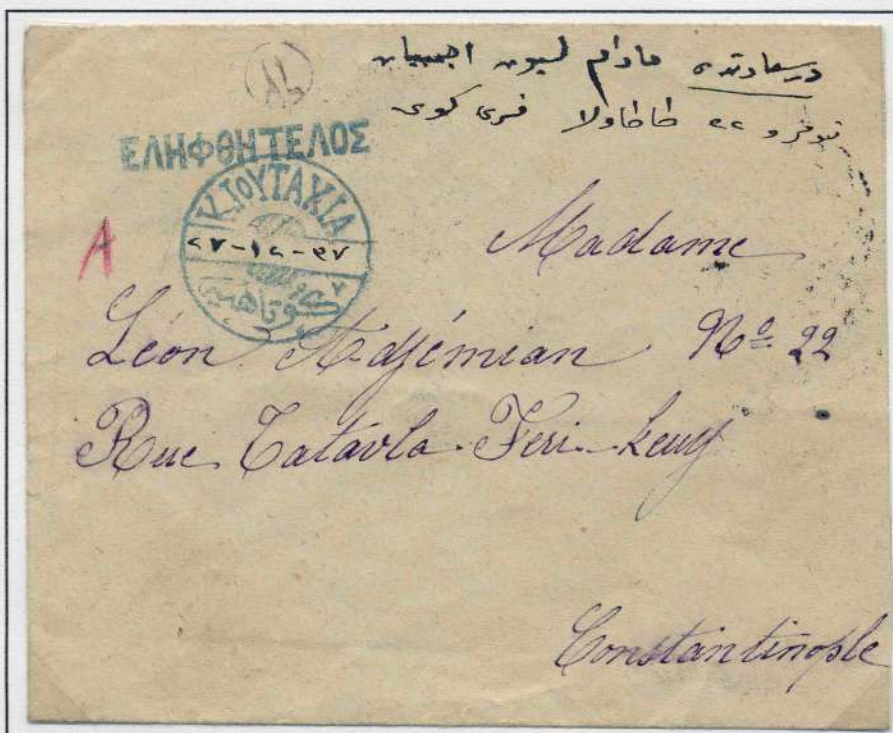 درسعادتده مادام ليون اجميان
نومرو ٢٢ طاطاولا فرى كوى
ΕΛΗΦΘΗ ΤΕΛΟΣ
ΚΙΟΥΤΑΧΙΑ
A
٣٧-١٢-٢٧
Madame
Léon Adjémian Nº 22
Rue Tatavla Feri-keuy
Constantinople